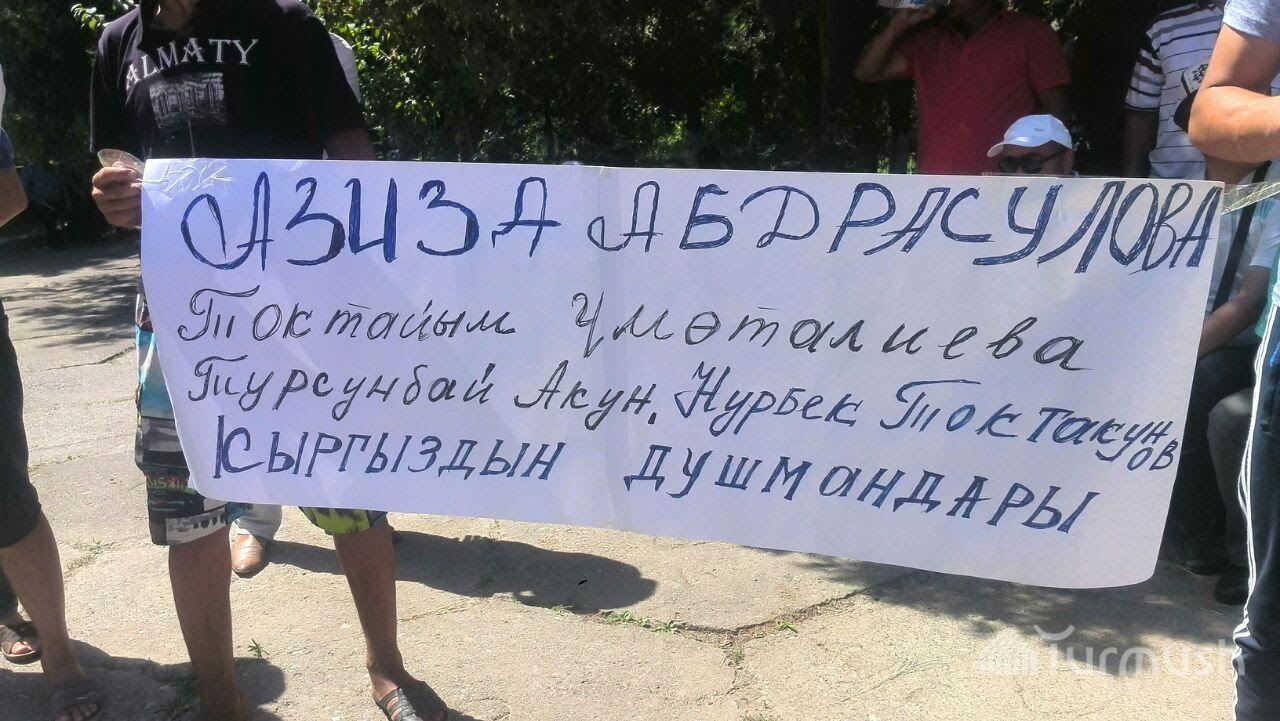 ALMATY
АЗИЗА АБДРАСУЛОВА
Токтайым Үмөталиева
Турсунбай Акун, Нурбек Токтакунов
Кыргыздын душмандары
Turmush